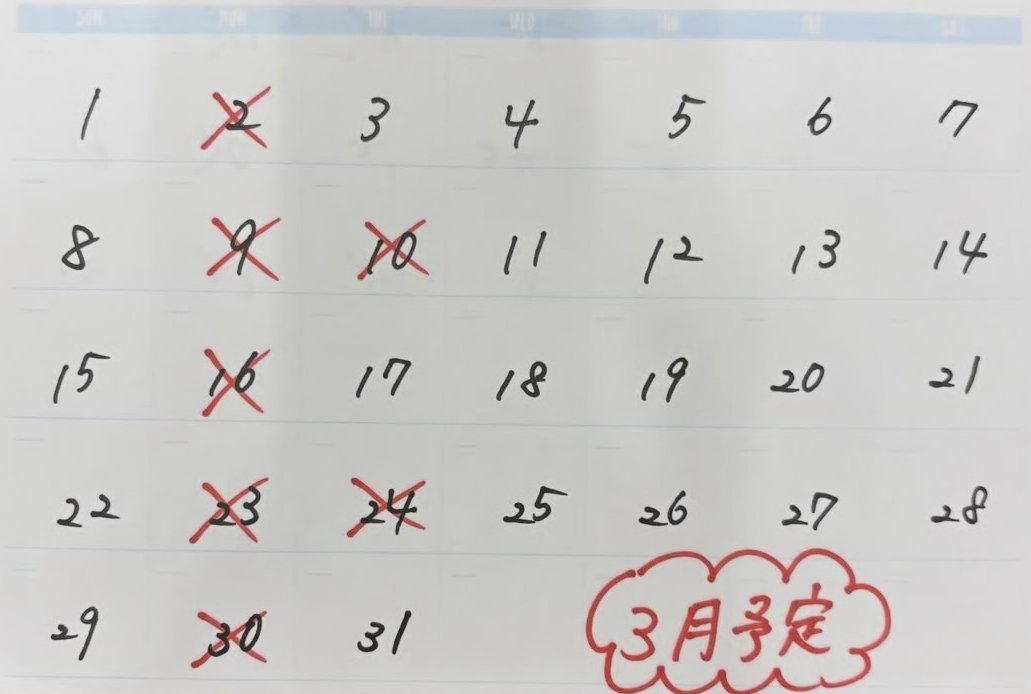 SUN MON TUE WED THU FRI SAT
1 2 3 4 5 6 7
8 9 10 11 12 13 14
15 16 17 18 19 20 21
22 23 24 25 26 27 28
29 30 31
3月予定